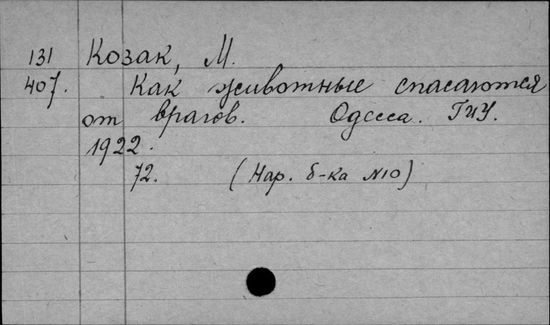 131 Козак, М.
407. Как животные спасаются
от врагов. Одесса. ГИУ.
1922.
72. (Нар. б-ка №10)